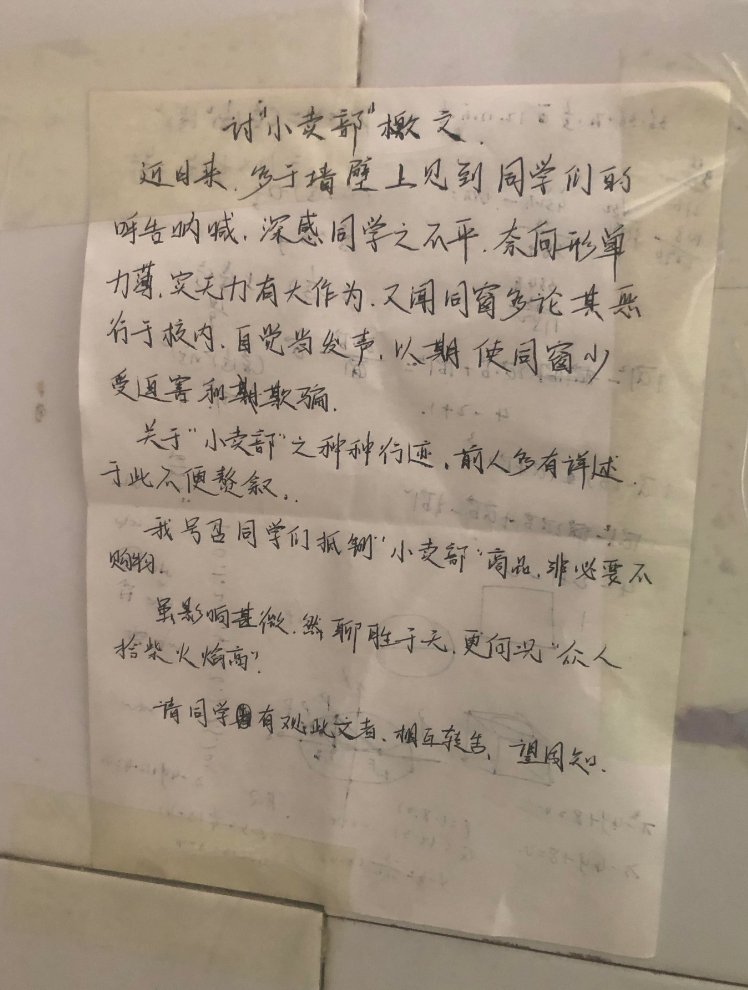 讨"小卖部"檄文.
近日来,多于墙壁上见到同学们的
呼告呐喊,深感同学之不平.奈何形单
力薄,实无力有大作为.又闻同窗多论其恶
行于校内,自觉当发声,以期使同窗少
受迫害和欺骗.
关于"小卖部"之种种行迹,前人多有详述.
于此不便赘叙..
我号召同学们抵制"小卖部"商品,非必要不
购物.
虽影响甚微.然聊胜于无,更何况"众人
拾柴火焰高".
请同学有观此文者,相互转告,望周知.